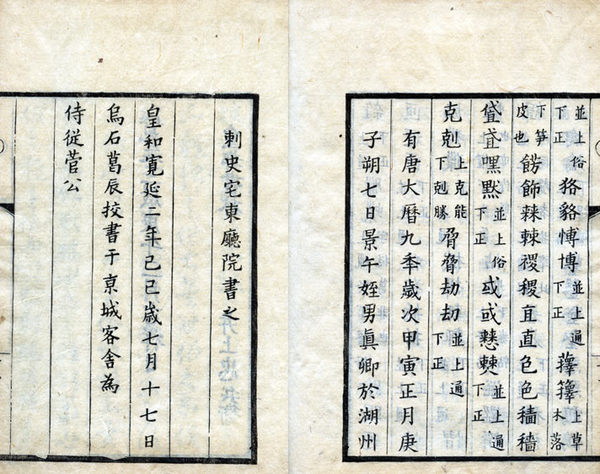 並上俗下正狢貉愽博並上通下正蘀籜上草木落
下筍皮也飾稷稷直色色穡穡
嘿默並上俗下正或並上通下正
克剋上克能下剋勝脅脅劫刧並上通下正
有唐大曆九秊歲次甲寅正月庚
子朔七日景午姪男眞卿於湖州
刺史宅東廳院書之
皇和寬延二年己巳歲七月十七日
烏石葛辰挍書于亰城客舎為
侍從菅公